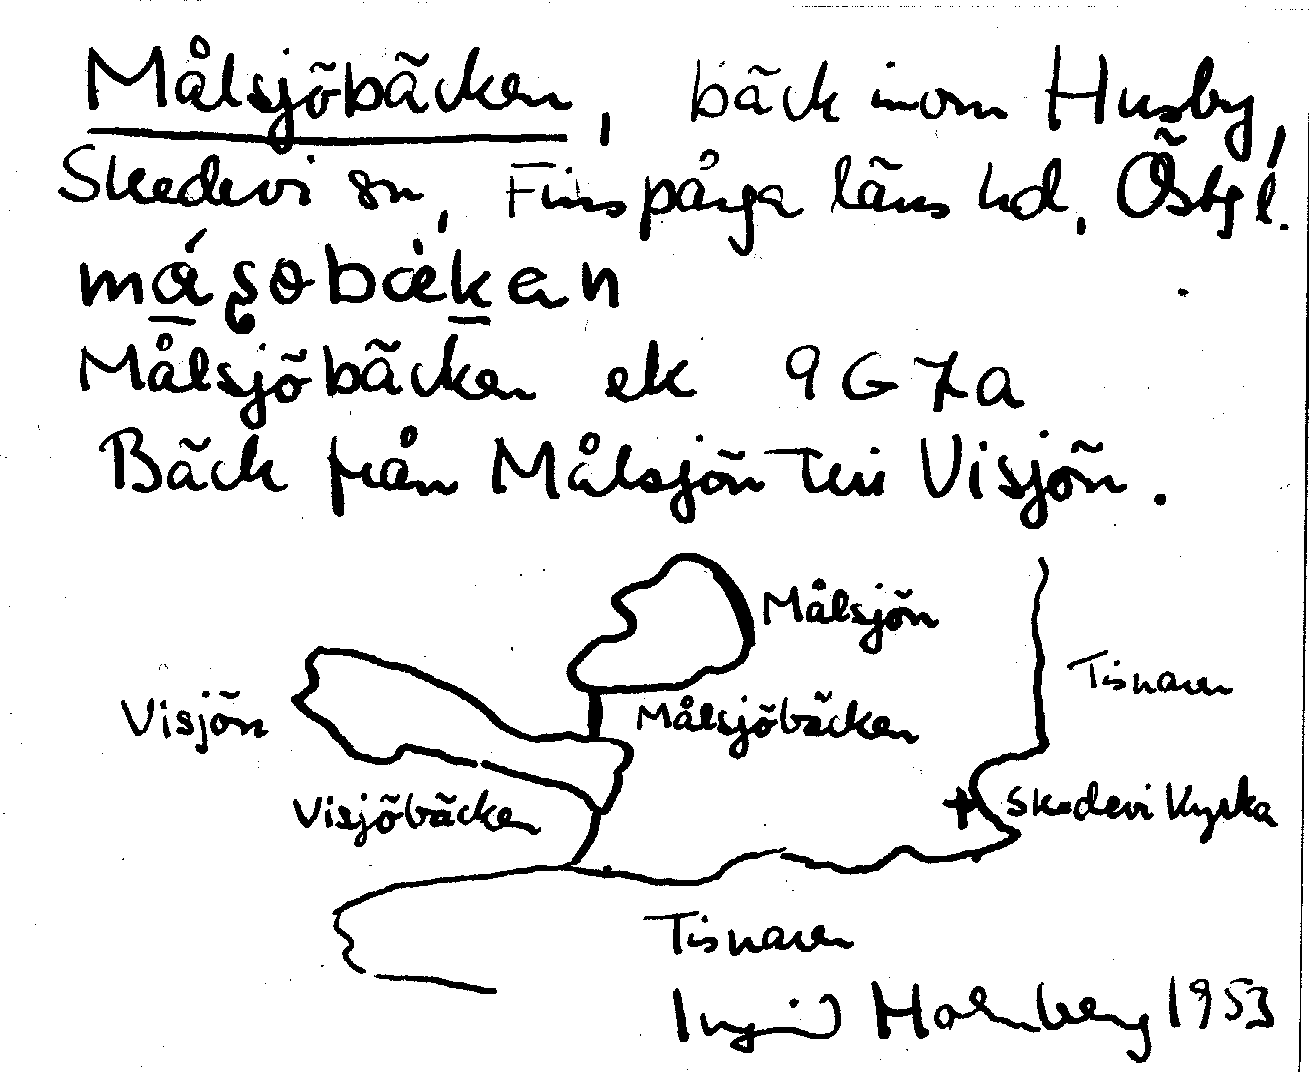 Målsjöbäcken, bäck inom Husby,
Skedevi sn, Finspånga läns hd, Östgl.
Målsjöbäcken ek 9G7a
Bäck från Målsjön till Visjön.
Målsjön
Tisnaren
Visjön
Målsjöbäcken
Skedevi Kyrka
Visjöbäcken
Tisnaren
Ingrid Holmberg 1953